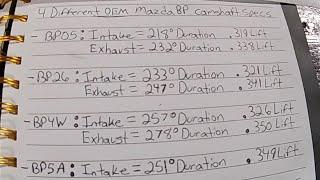 4 Different OEM Mazda BP camshaft specs
- BP05: Intake = 218° Duration .319 Lift
Exhaust = 232° Duration .338 Lift
- BP26: Intake = 233° Duration .321 Lift
Exhaust = 247° Duration .341 Lift
- BP4W: Intake = 257° Duration .326 Lift
Exhaust = 278° Duration .350 Lift
- BP5A: Intake = 251° Duration .349 Lift